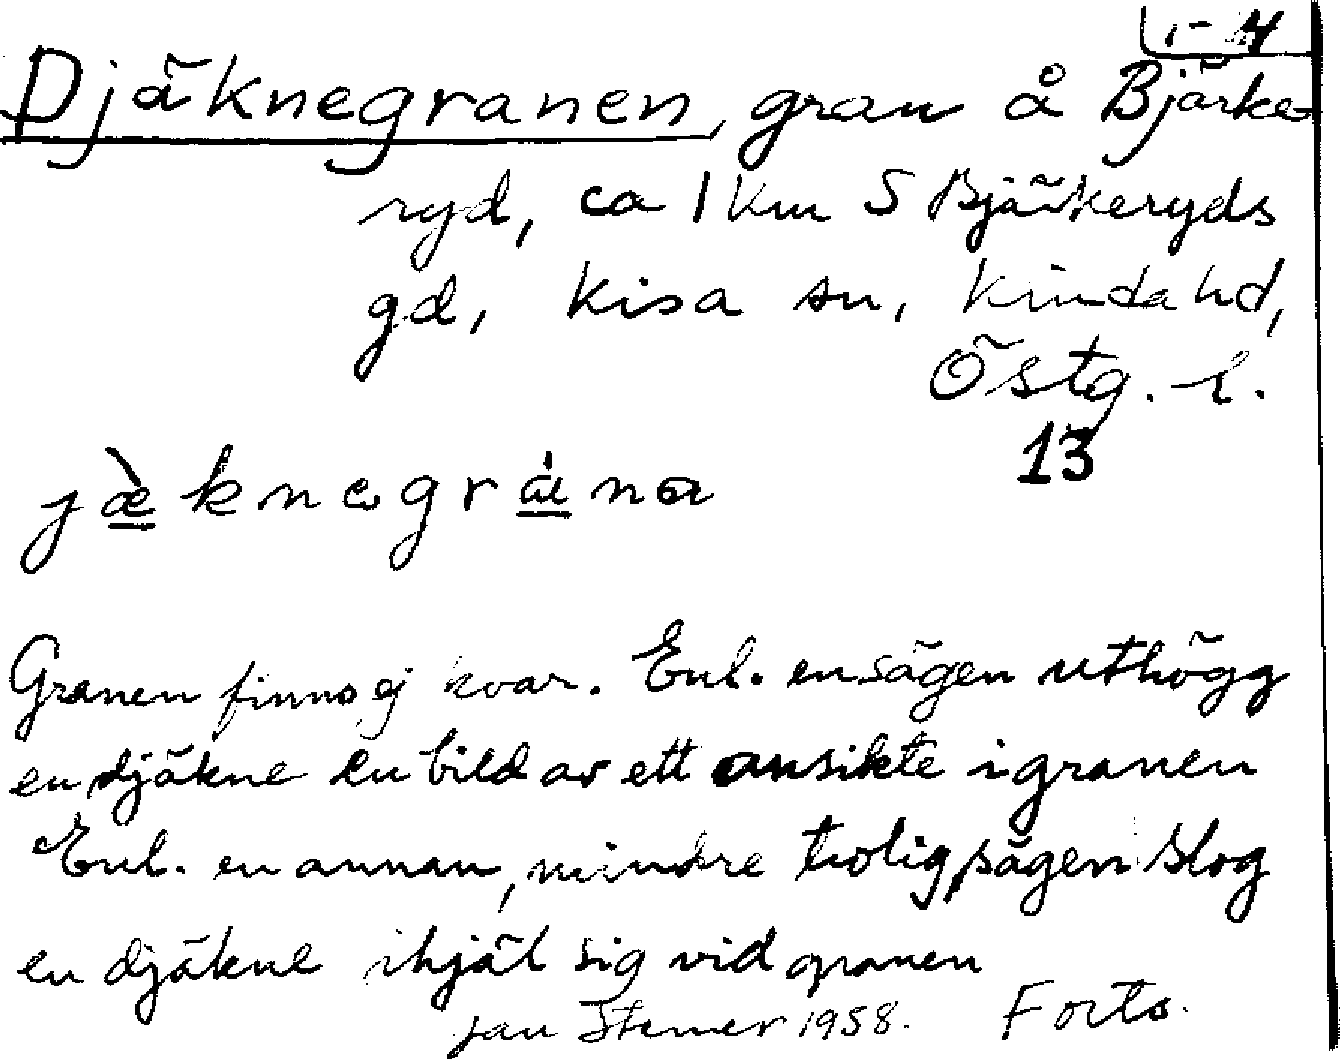 1-4
Djäknegranen, gran å Bjärke-
ryd, ca 1 km S Bjärkeryds
gd, Kisa sn, Kinda hd,
Östg. l.
13
jæ̀knegrána
Granen finns ej kvar. Enl. en sägen uthögg
en djäkne en bild av ett ansikte i granen
Enl. en annan, mindre trolig, sägen slog
en djäkne ihjäl sig vid granen
Jan Stemer 1958. Forts.